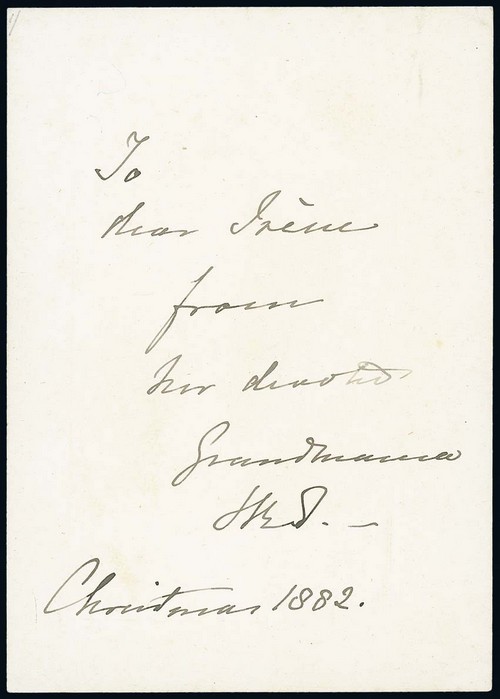 To
dear Irène
from
her devoted
Grandmama
Christmas 1882.